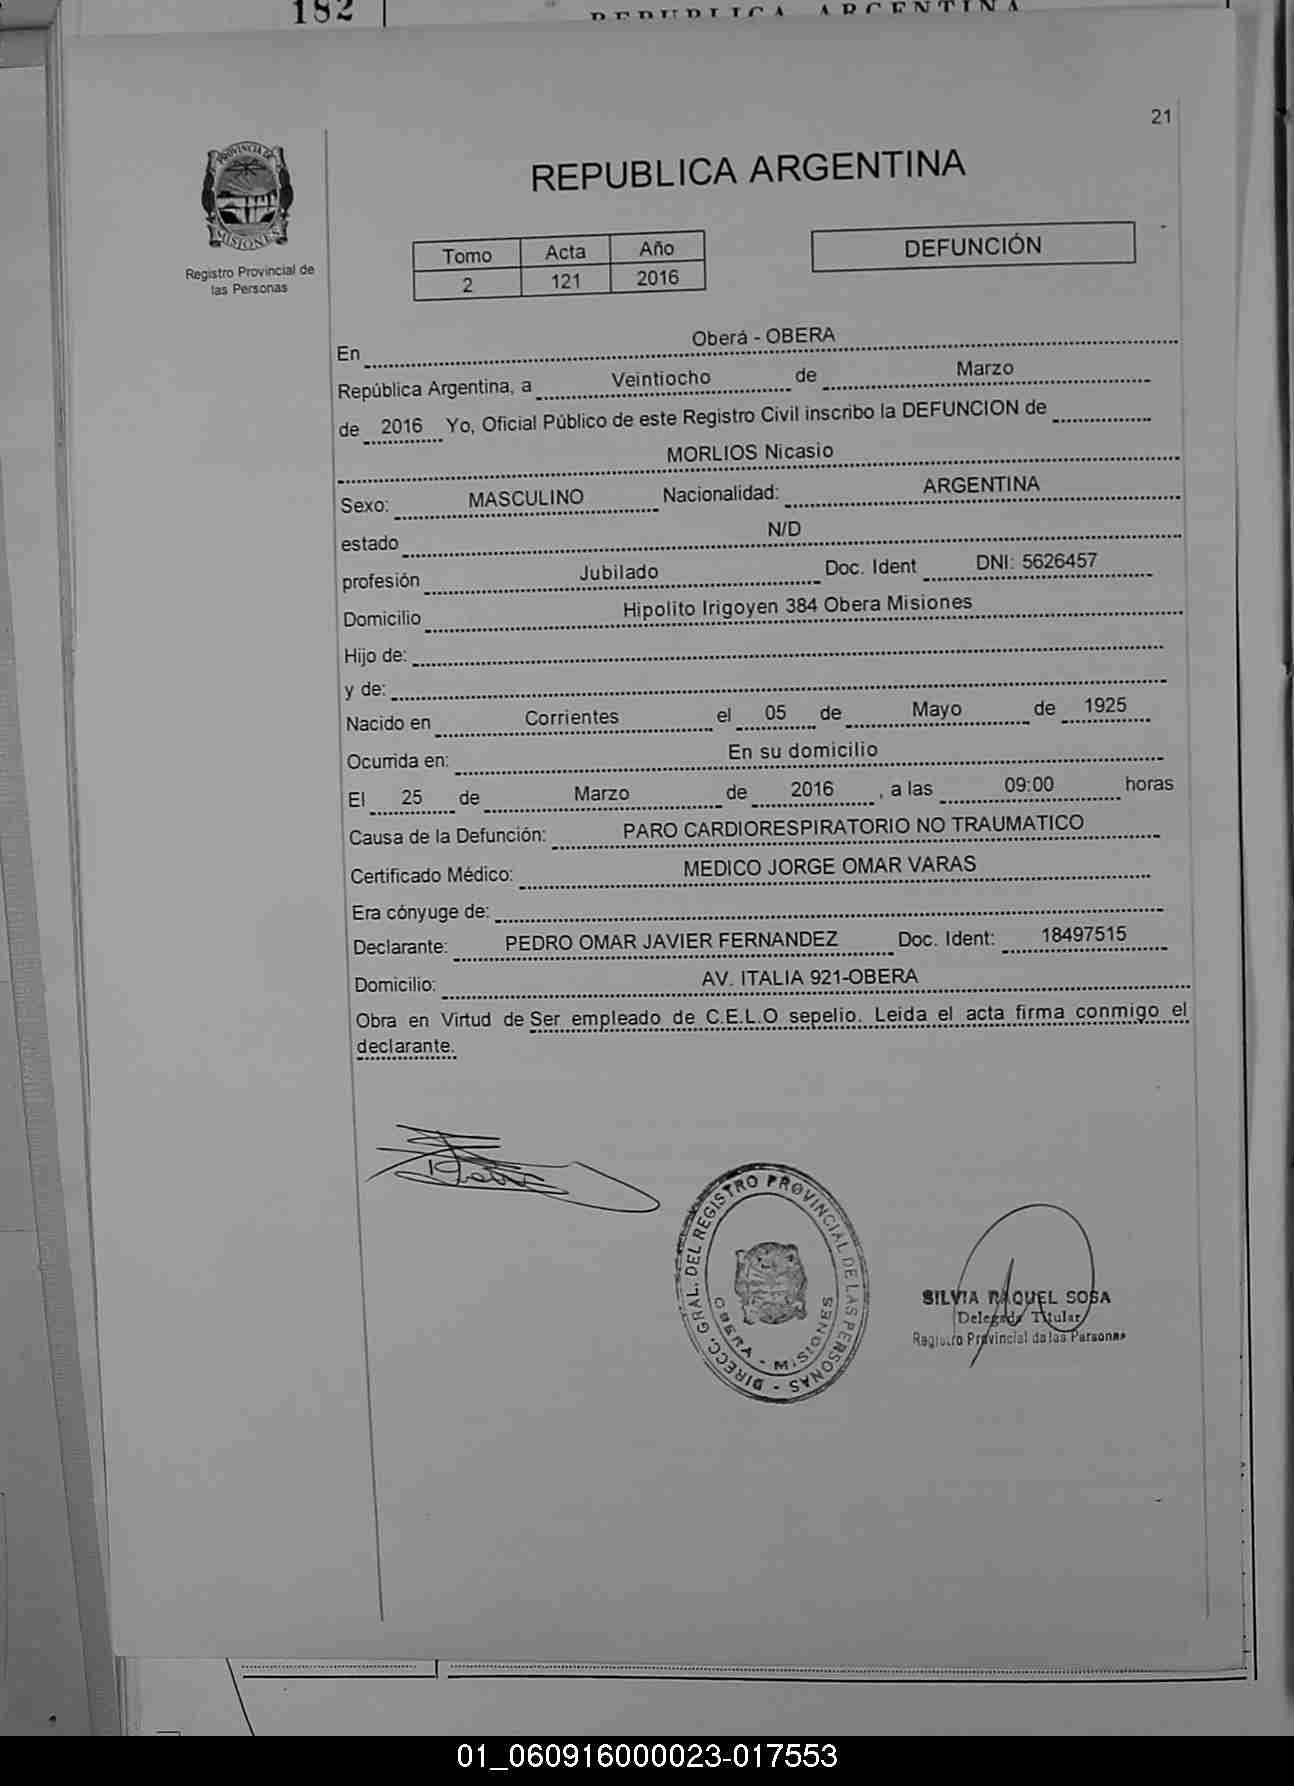 182
REPUBLICA ARGENTINA
21
PROVINCIA DE
MISIONES
Registro Provincial de
las Personas
REPUBLICA ARGENTINA
Tomo Acta Año
2 121 2016
DEFUNCIÓN
En Oberá - OBERA
República Argentina, a Veintiocho de Marzo
de 2016 Yo, Oficial Público de este Registro Civil inscribo la DEFUNCION de
MORLIOS Nicasio
Sexo: MASCULINO Nacionalidad: ARGENTINA
estado N/D
profesión Jubilado Doc. Ident DNI: 5626457
Domicilio Hipolito Irigoyen 384 Obera Misiones
Hijo de:
y de:
Nacido en Corrientes el 05 de Mayo de 1925
Ocurrida en: En su domicilio
El 25 de Marzo de 2016 , a las 09:00 horas
Causa de la Defunción: PARO CARDIORESPIRATORIO NO TRAUMATICO
Certificado Médico: MEDICO JORGE OMAR VARAS
Era cónyuge de:
Declarante: PEDRO OMAR JAVIER FERNANDEZ Doc. Ident: 18497515
Domicilio: AV. ITALIA 921-OBERA
Obra en Virtud de Ser empleado de C.E.L.O sepelio. Leida el acta firma conmigo el
declarante.
DIRECC. GRAL. DEL REGISTRO PROVINCIAL DE LAS PERSONAS -
OBERA - MISIONES
SILVIA RAQUEL SOSA
Delegada Titular
Registro Provincial de las Personas
01_060916000023-017553